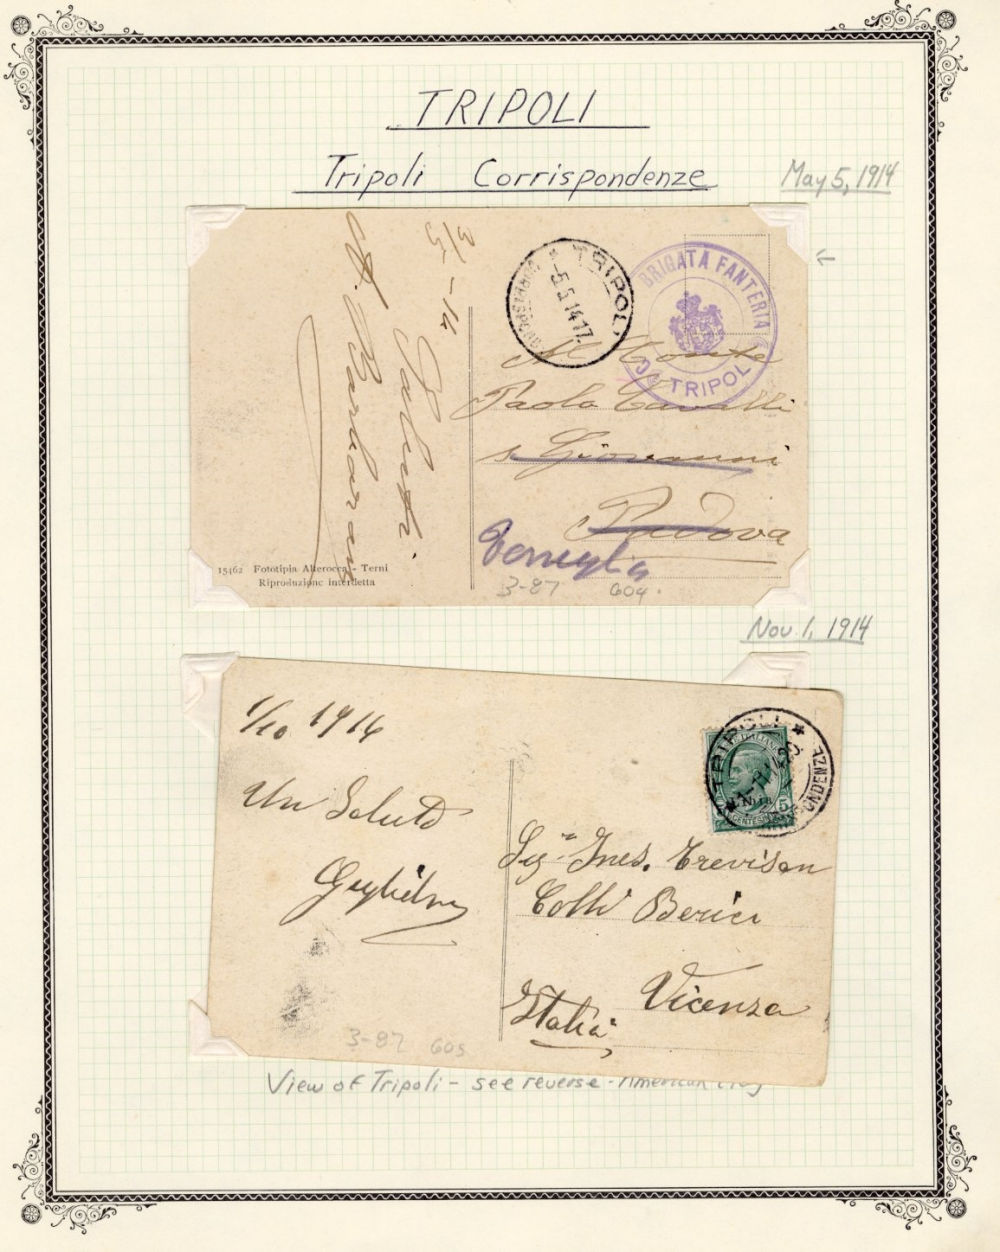 TRIPOLI
Tripoli Corrispondenze
May 5, 1914
3/5 - 14
Saluti
A. Barbaran
TRIPOLI
5.5.14.17
BRIGATA FANTERIA
DI TRIPOLI
Al Conte
Paolo Cavalli
s. Giovanni
Padova
15462 Fototipia Alterocca - Terni
Riproduzione interdetta
3-87 60q.
Nov. 1, 1914
1/10 1914
Un Saluto
TRIPOLI
5
CENTESIMI
Sig.na Ines. Trevisan
Colli Berici
Vicenza
Italia
3-87 60s
View of Tripoli - see reverse - American